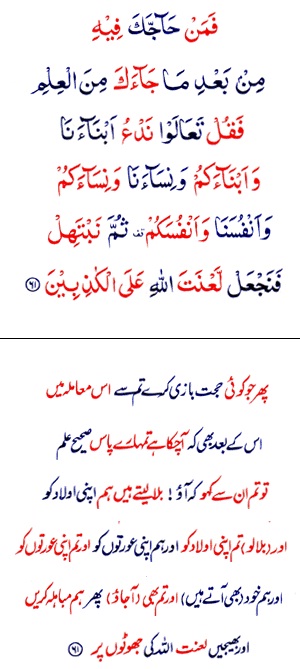 فَمَنْ حَآجَّكَ فِيْهِ
مِنْۢ بَعْدِ مَا جَآءَكَ مِنَ الْعِلْمِ
فَقُلْ تَعَالَوْا نَدْعُ اَبْنَآءَنَا
وَاَبْنَآءَكُمْ وَنِسَآءَنَا وَنِسَآءَكُمْ
وَاَنْفُسَنَا وَاَنْفُسَكُمْ ثُمَّ نَبْتَهِلْ
فَنَجْعَلْ لَّعْنَتَ اللّٰهِ عَلَى الْكٰذِبِيْنَ ﴿۶۱﴾
پھر جو کوئی حجت بازی کرے تم سے اس معاملہ میں
اس کے بعد بھی کہ آچکا ہے تمہارے پاس صحیح علم
تو تم ان سے کہو کہ آؤ! بلا لیتے ہیں ہم اپنی اولاد کو
اور (بلالو) تم اپنی اولاد کو اور ہم اپنی عورتوں کو اور تم اپنی عورتوں کو
اور ہم خود (بھی آتے ہیں) اور تم بھی (آجاؤ) پھر ہم مباہلہ کریں
اور بھیجیں لعنت اللہ کی جھوٹوں پر ﴿۶۱﴾